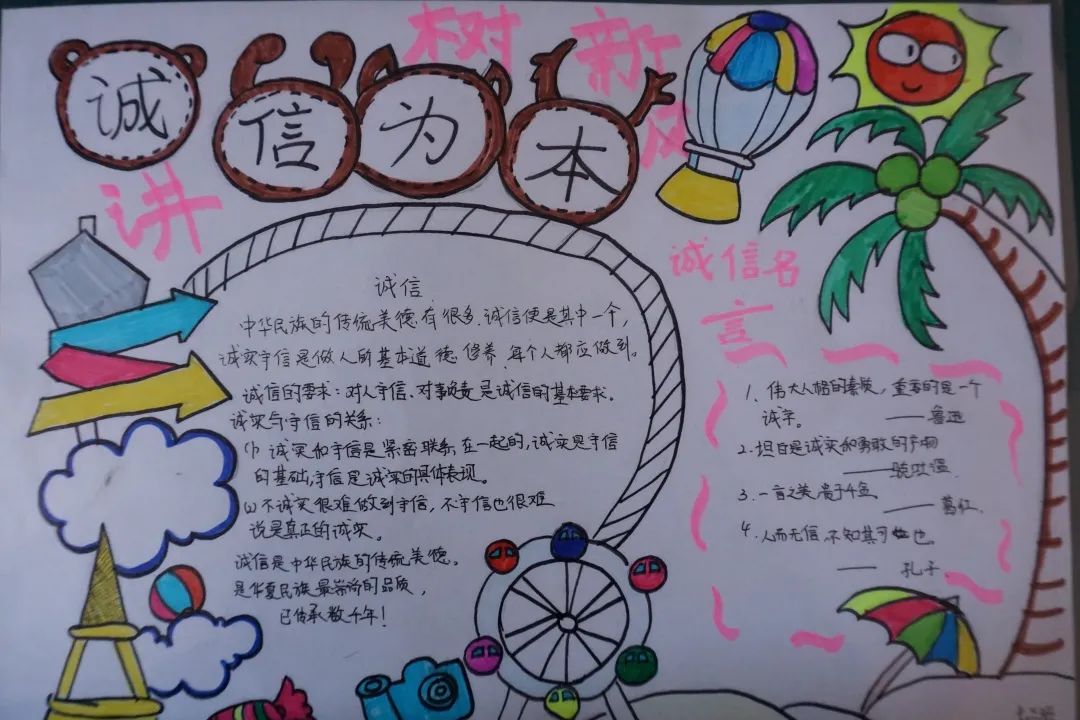 诚信为本
讲
树新风
诚信
中华民族的传统美德有很多,诚信便是其中一个,
诚实守信是做人所基本道德修养,每个人都应做到。
诚信的要求:对人守信、对事负责是诚信的基本要求。
诚实与守信的关系:
(1)诚实和守信是紧密联系在一起的,诚实是守信
的基础,守信是诚实的具体表现。
(2)不诚实很难做到守信,不守信也很难
说是真正的诚实。
诚信是中华民族的传统美德。
是华夏民族最崇尚的品质,
已传承数千年!
诚信名
言
1、伟大人格的素质,重要的是一个
诚字。——鲁迅
2、坦白是诚实和勇敢的产物
——
3、一言之美,贵于千金。
——葛洪
4、人而无信,不知其可也。
——孔子